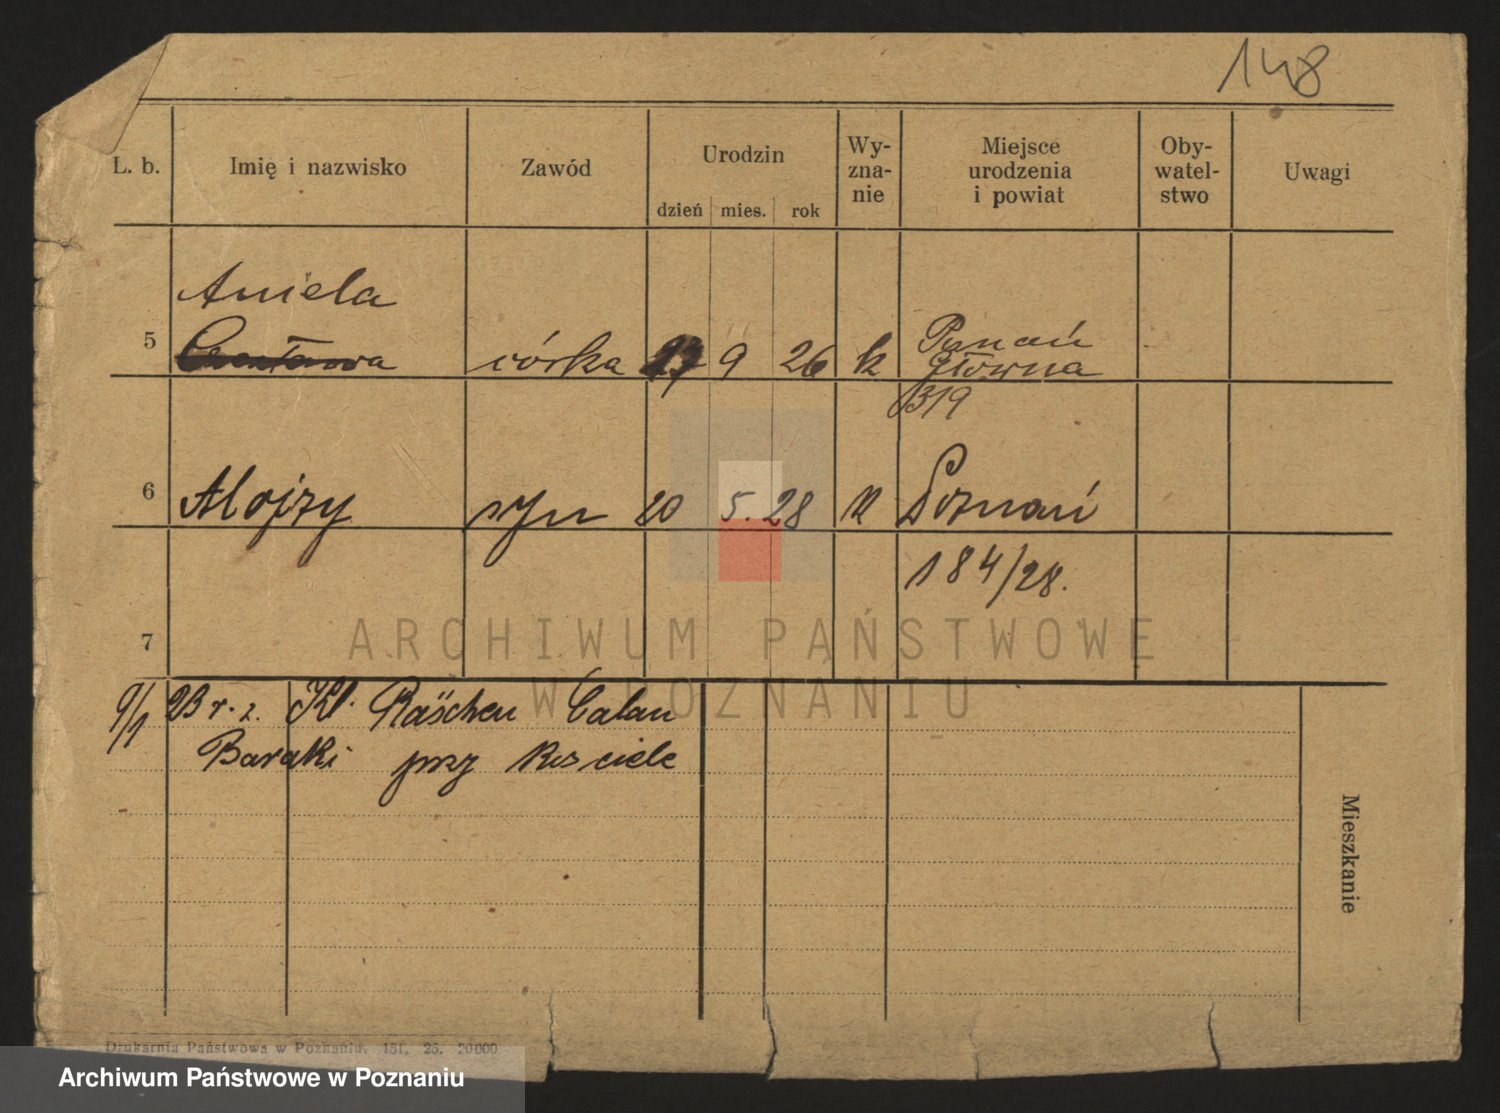 148
L. b. Imię i nazwisko Zawód Urodzin Wy-zna-nie Miejsce urodzenia i powiat Oby-watel-stwo Uwagi
dzień mies. rok
Aniela
5 córka 9 26 k Poznań
Główna
319
6 Alojzy syn 20 5. 28 k Poznań
184/28.
7
9/1 23 r. z. Kl. Räschen Calau
Baraki przy
Mieszkanie
Drukarnia Państwowa w Poznaniu. 151. 25. 20000
ARCHIWUM PAŃSTWOWE
W POZNANIU
Archiwum Państwowe w Poznaniu